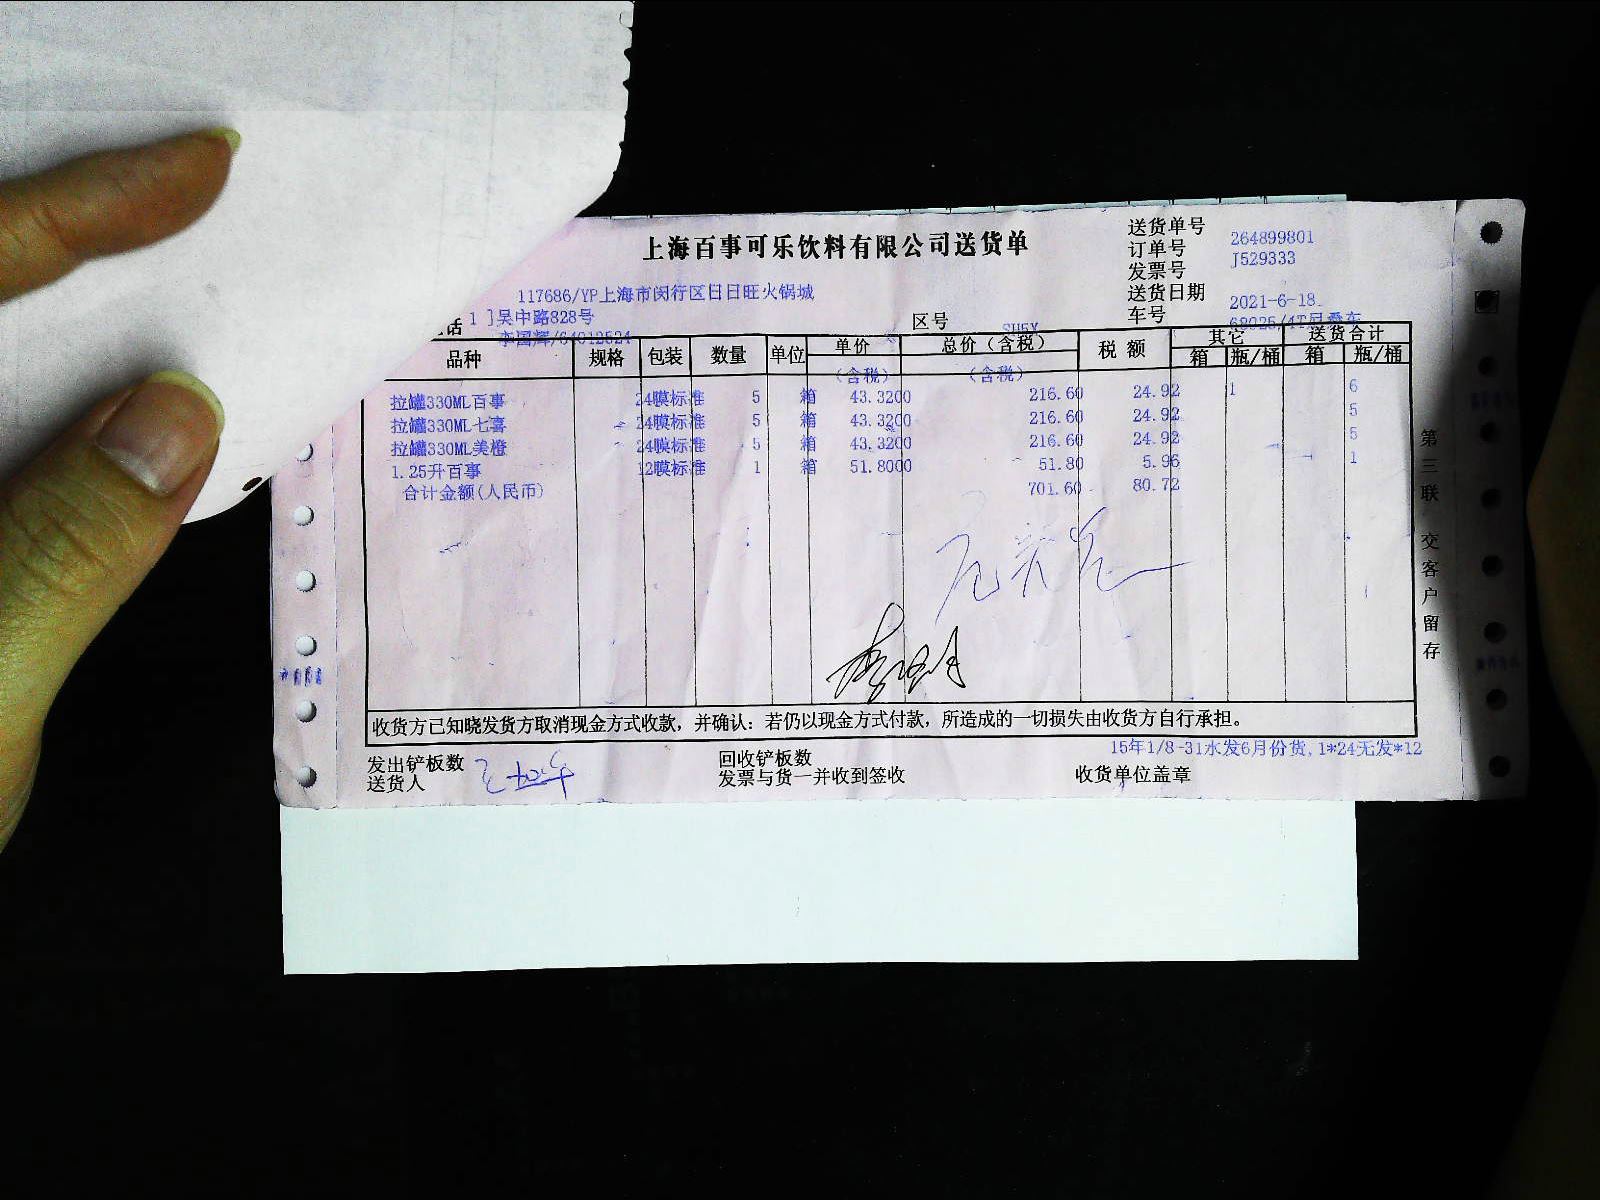 上海百事可乐饮料有限公司送货单
送货单号 264899801
订单号 J529333
发票号
送货日期 2021-6-18
车号
117686/YP上海市闵行区日日旺火锅城
1 ]吴中路828号
李国辉/64012524
区号 SH5Y
品种 规格 包装 数量 单位 单价 总价(含税) 税额 其它 送货合计
箱 瓶/桶 箱 瓶/桶
(含税) (含税)
拉罐330ML百事 24膜标准 5 箱 43.3200 216.60 24.92 1 6
拉罐330ML七喜 24膜标准 5 箱 43.3200 216.60 24.92 5
拉罐330ML美橙 24膜标准 5 箱 43.3200 216.60 24.92 5
1.25升百事 12膜标准 1 箱 51.8000 51.80 5.96 1
合计金额(人民币) 701.60 80.72
第三联 交客户留存
收货方已知晓发货方取消现金方式收款，并确认：若仍以现金方式付款，所造成的一切损失由收货方自行承担。
15年1/8-31水发6月份货,1*24无发*12
发出铲板数 回收铲板数
送货人 发票与货一并收到签收 收货单位盖章